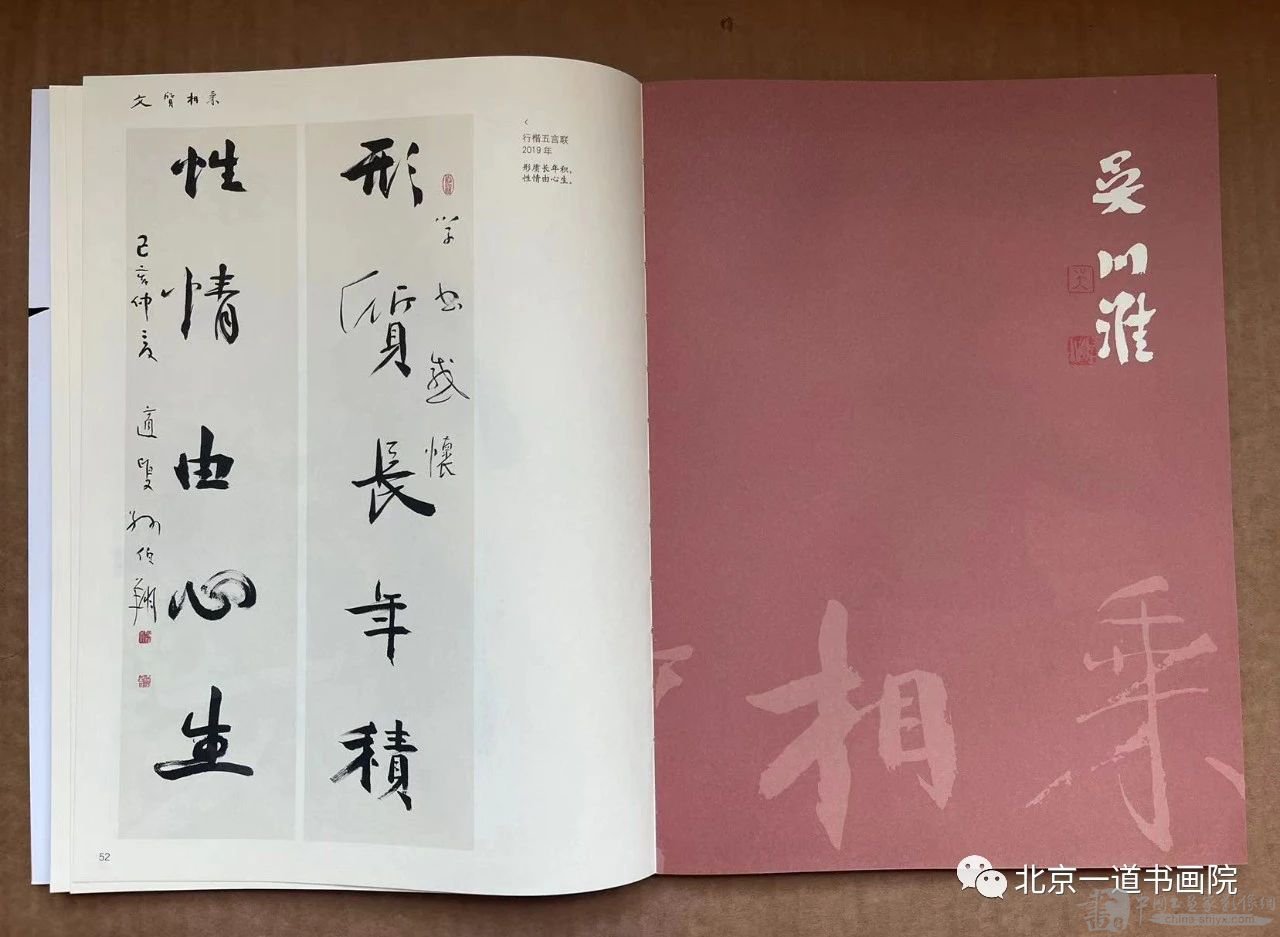 文質相乘
形質長年積
學書感懷
性情由心生
己亥仲夏 適叟 孫伯翔
行楷五言联
2019 年
形质长年积，
性情由心生。
52
吴川淮
相乘
北京一道书画院
中国书画家影像网
china-shjyx.com